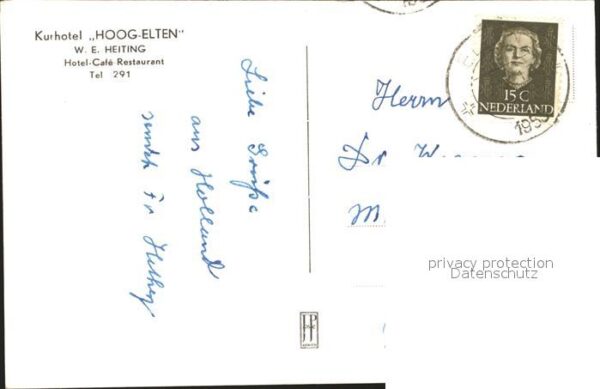 Kurhotel „HOOG-ELTEN"
W. E. HEITING
Hotel-Café Restaurant
Tel 291
Liebe Grüße
aus Holland
sendet Fr
Herrn
Dr
M
15 C
NEDERLAND
195
JP
privacy protection
Datenschutz